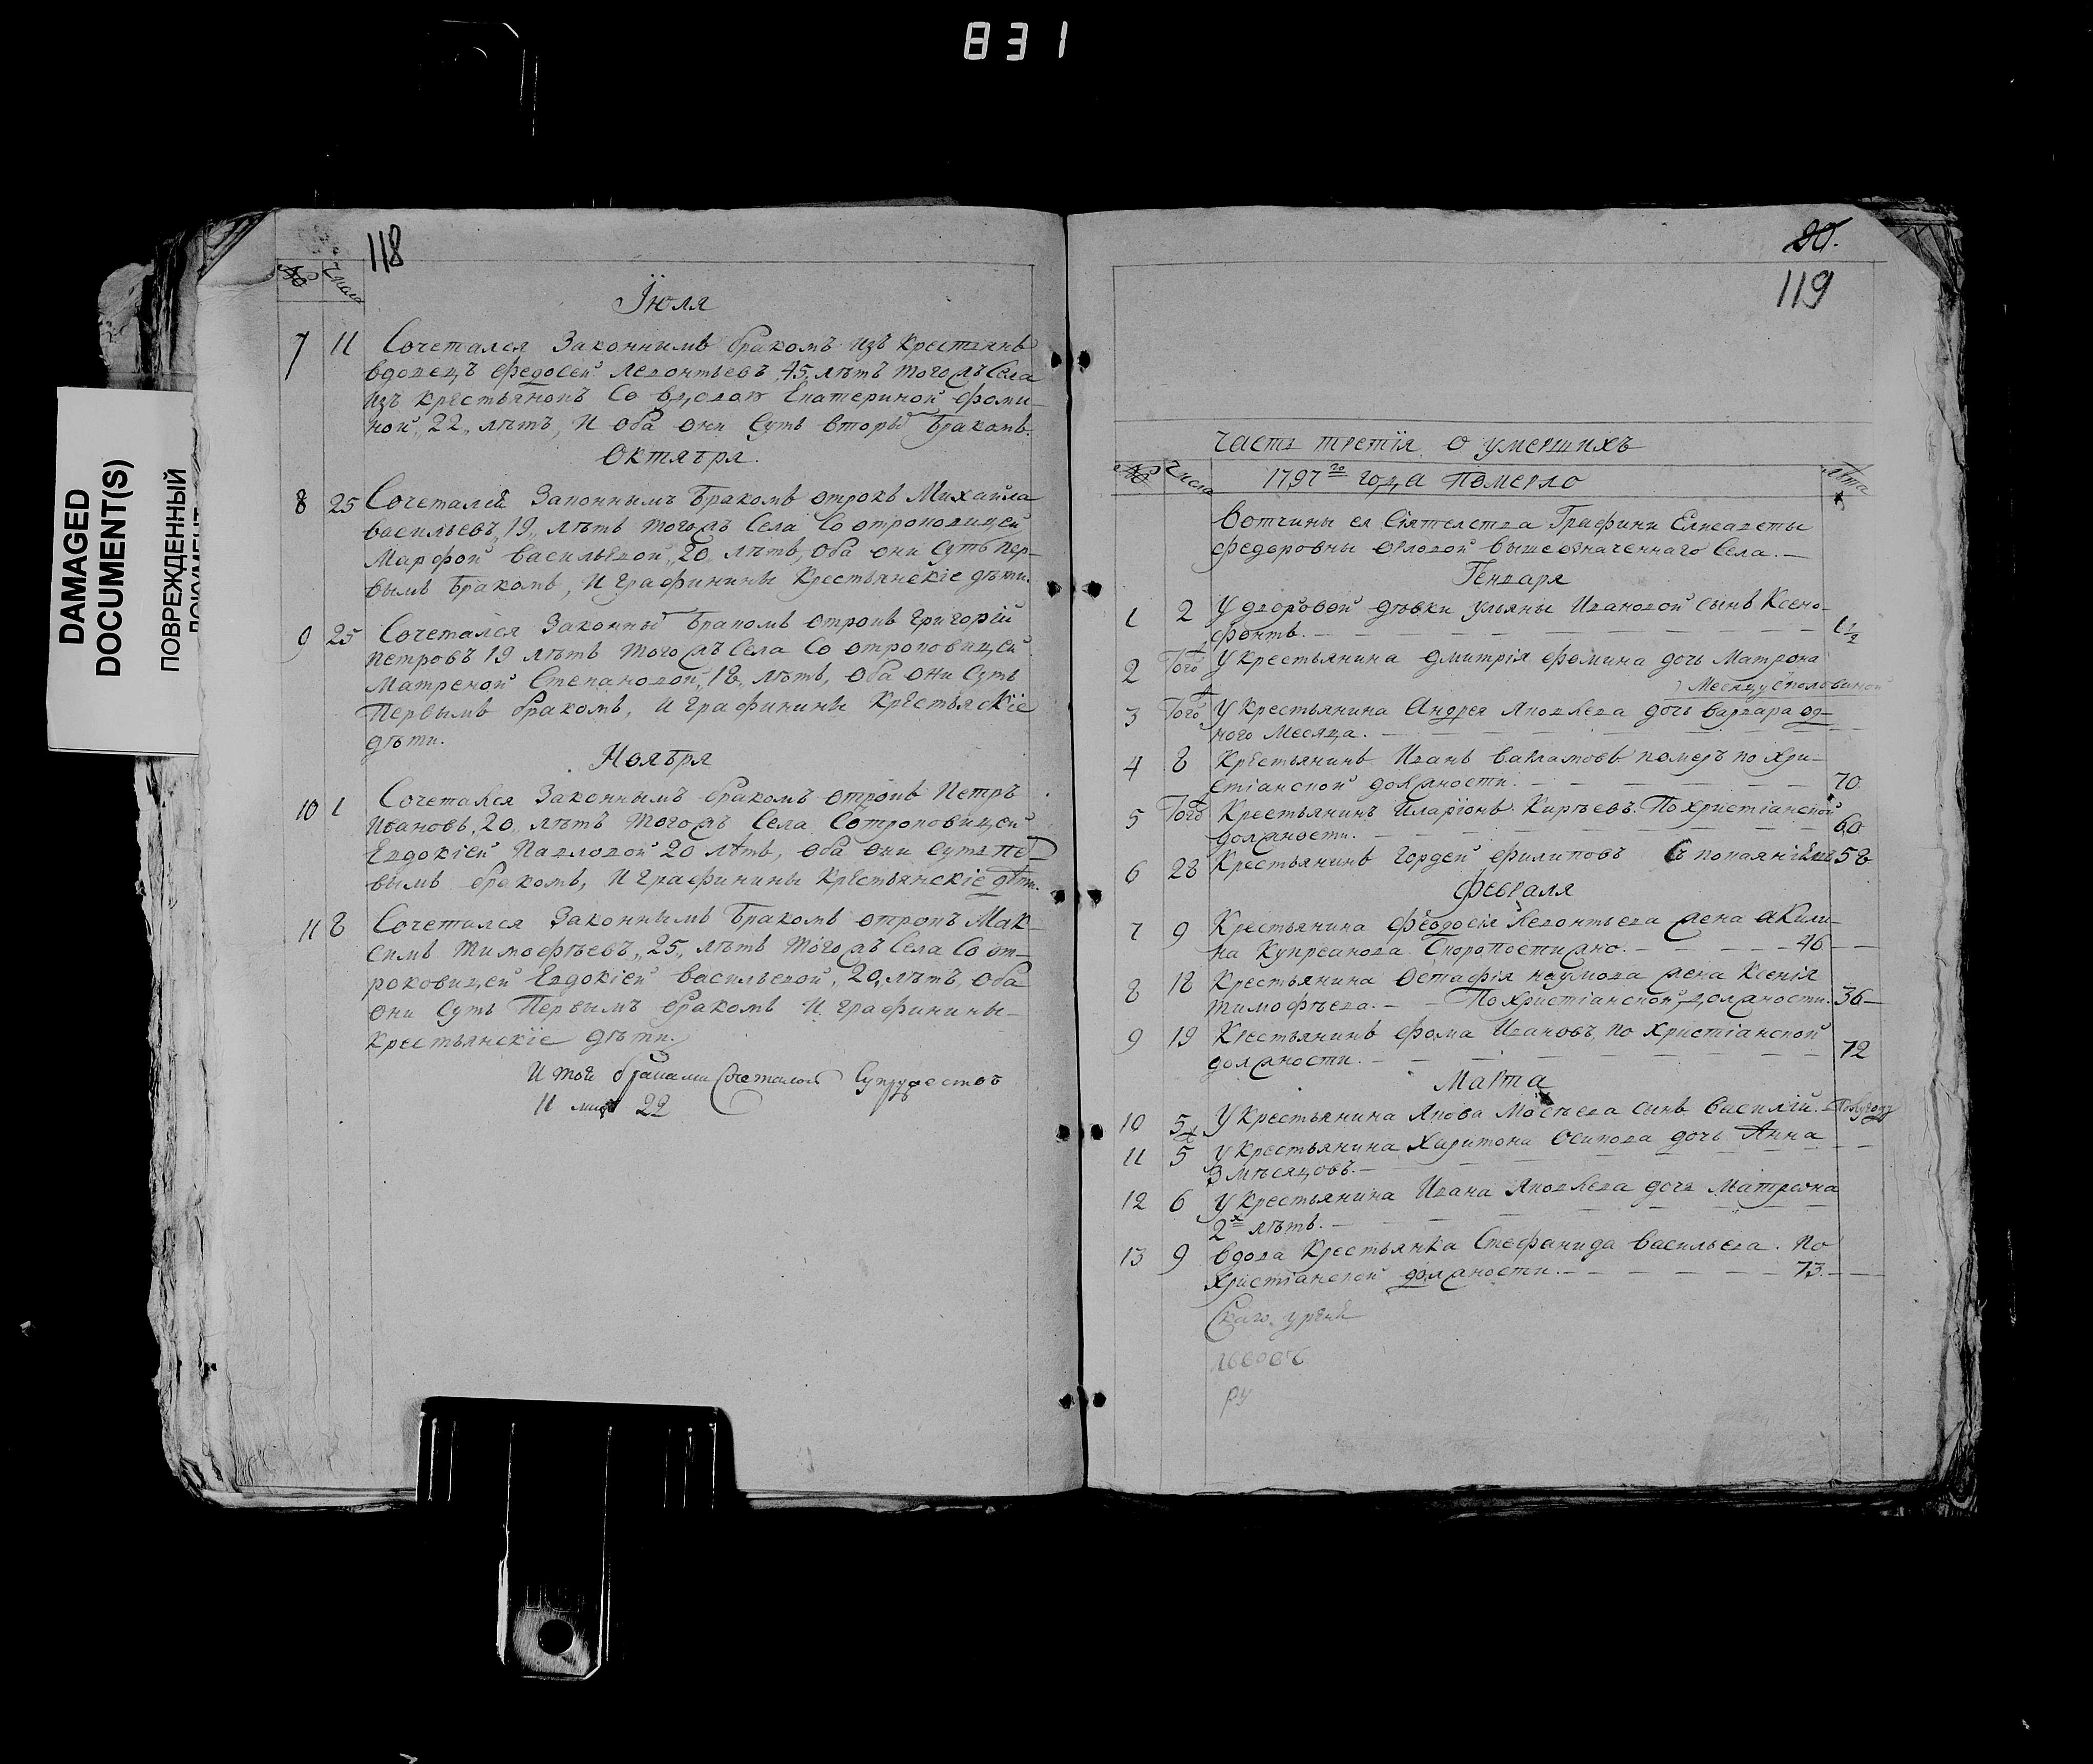 831
DAMAGED
DOCUMENT(S)
ПОВРЕЖДЕННЫЙ
118
№ Числа
Їюля
7 11 Сочетался Законнымъ бракомъ изъ крестьянъ
вдовецъ Федосей Леонтьевъ, 45, лѣтъ тогожъ Села
изъ крестьянокъ Со вдовою Екатериной Фоми-
ной, 22, лѣтъ, И оба они Суть вторы бракомъ.
Октября.
8 25 Сочетался Законнымъ бракомъ отрокъ Михайла
васильевъ, 19, лѣтъ тогожъ Села Со отроковицей
Марфой васильевой, 20 лѣтъ, оба они Суть пер-
вымъ бракомъ, И графинины Крестьянскіе дѣти.
9 25 Сочетался Законны бракомъ отрокъ Григорій
петровъ 19 лѣтъ тогожъ Села Со отроковицей
Матреной Степановой, 18, лѣтъ, оба они Суть
Первымъ бракомъ, И графинины Крестьяскіе
дѣти.
Ноября
10 1 Сочетался Законнымъ бракомъ отрокъ Петръ
Ивановъ, 20 лѣтъ тогожъ Села Сотроковицей
Евдокіей Павловой 20 лѣтъ, оба они суть пе
вымъ бракомъ, И графинины Крестьянскіе дѣти.
11 8 Сочетался Законнымъ бракомъ отрокъ Мак-
симъ тимофѣевъ, 25, лѣтъ тогожъ Села Со от-
роковицей Евдокіей васильевой, 20, лѣтъ, оба
они Суть Первымъ бракомъ И графинины
Крестьянскіе дѣти.
И той браками Сочеталось Супружествъ
11 лицъ 22
20.
119
часть третїя о умершихъ
№ Числа 1797го года Померло Лѣта
Вотчины ея Сіятелства Графини Елисаветы
федоровны Орловой вышеозначеннаго Села.
Генваря
1 2 У дворовой дѣвки ульяны Ивановой сынъ Ксено-
фонтъ. 1 1/2
2 Того У крестьянина дмитрія Фомина дочь Матрона
Месяцу споловиной
3 Того У крестьянина Андрея Яковлева дочь варвара од-
ного Месяца.
4 8 Крестьянинъ Иванъ варламовъ померъ по хри-
стіанской должности. 70.
5 Того Крестьянинъ Иларіонъ Кирѣевъ. По христіанской
должности. 60
6 28 Крестьянинъ Гордей филиповъ Съ покаяніемъ 58
Февраля
7 9 Крестьянина Феодосія Леонтьева жена акили-
на Купреанова Скоропостижно. 46
8 18 Крестьянина Остафія наумова жена Ксенія
тимофѣева. По христіанской должности. 36
9 19 Крестьянинъ фома Ивановъ, по христіанской
должности. 72
Марта
10 5 У Крестьянина Якова Мосѣева сынъ василій. Полугоду
11 5 У Крестьянина Харитона Осипова дочь Анна
3 мѣсяцовъ.
12 6 У Крестьянина Ивана Яковлева дочь Матрона
2х лѣтъ.
13 9 Вдова Крестьянка Стефанида васильева. По
христіанской должности. 73.
ру